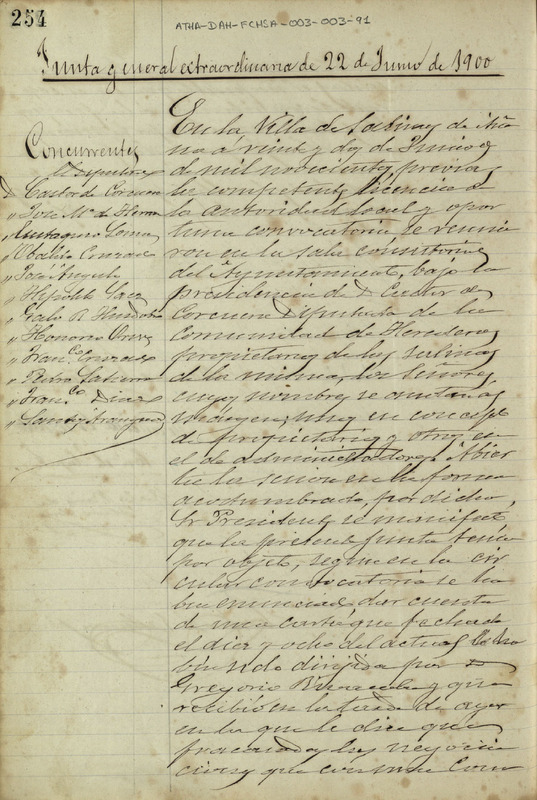 254
ATHA-DAH-FCHSA-003-003-91
Junta general extraordinaria de 22 de Junio de 1900
Concurrentes
D Castor de Corcuera
" Jose Ma. de Herran
" Eustaquio
" Obalio
" Jose Angulo
" Hipolito Saez
" Galo R
" Honorio
" Franco.
" Pedro
" Franco. Diaz
" Santos Aranguren
En la Villa de Salinas de Aña
na a veinte y dos de Junio
de mil novecientos, previa
la competente licencia de
la autoridad local y opor
tuna convocatoria se reunie
ron en la sala consistorial
del Ayuntamiento, bajo la
presidencia de D Castor de
Corcuera Diputado de la
Comunidad de Herederos
propietarios de las salinas
de la misma, los Señores,
cuyos nombres se anotan al
margen, unos en concepto
de propietarios y otros en
el de administradores. Abier
ta la sesion en la forma
acostumbrada, por dicho
Sr Presidente se manifestó
que la presente junta tenia
por objeto, segun en la cir
cular convocatoria se ha
bia enunciado, dar cuenta
de una carta que fechada
el diez y ocho del actual
dirijida por D
Gregorio y que
recibió en la tarde de ayer
en la que le dice que
fracasadas las negocia
ciones que con una Com